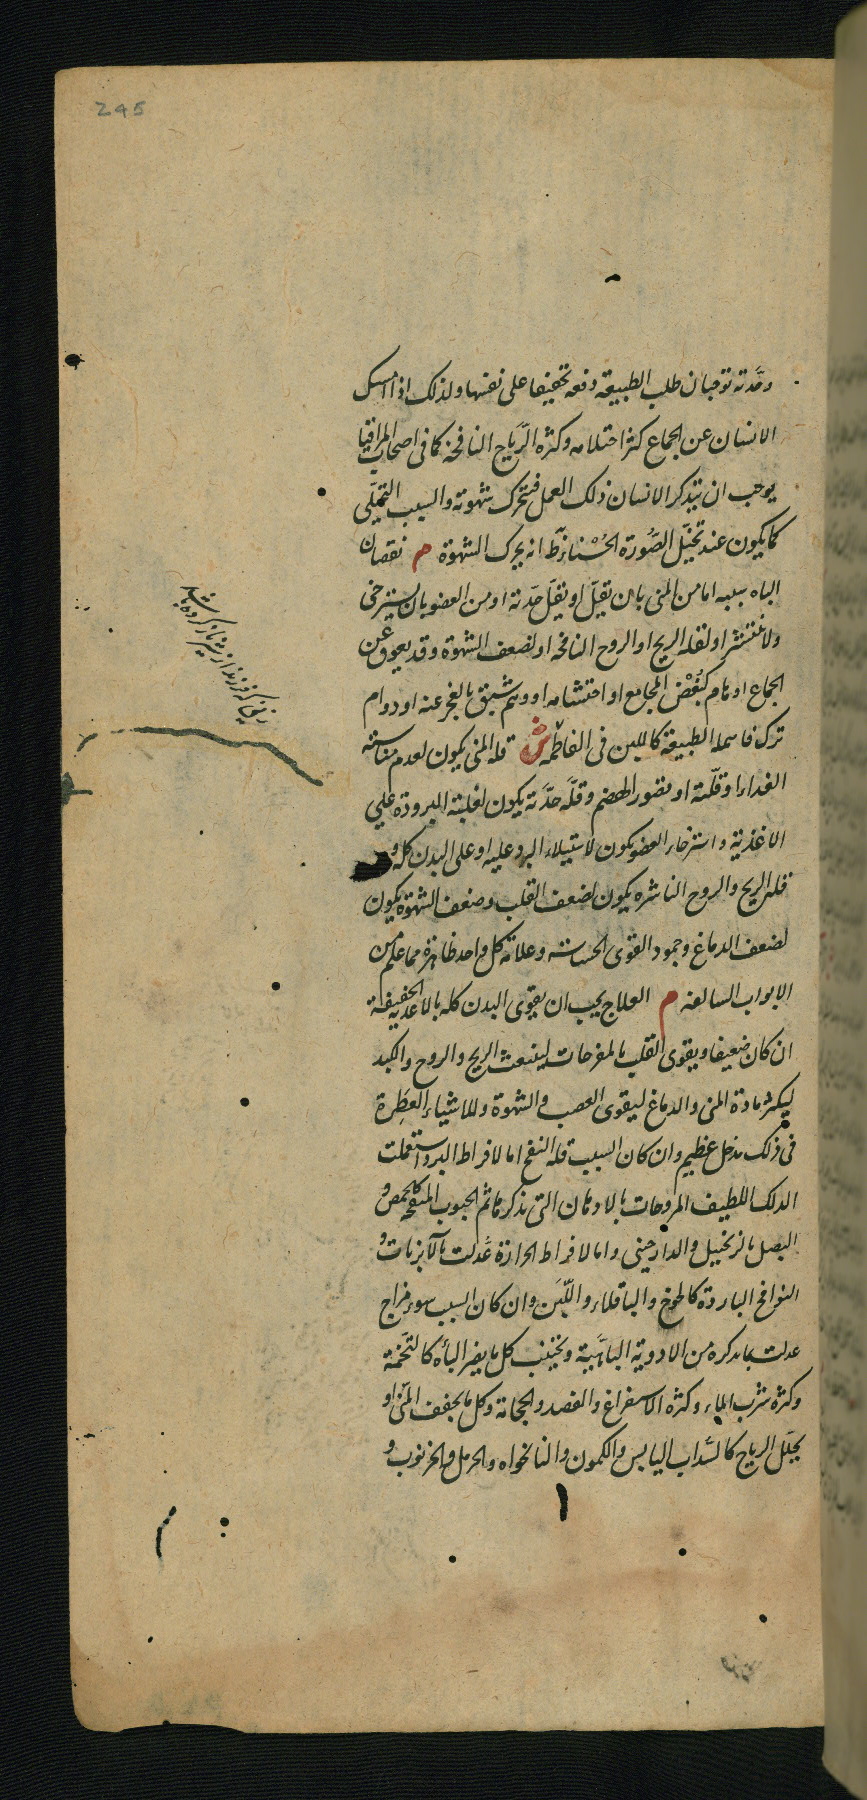 245
وحدته توجبان طلب الطبيعة دفعه تخفيفا على نفسها ولذلك اذا امسك
الانسان عن الجماع كثر احتلامه وكثرة الرياح النافخة كما فى اصحاب المراقيا
يوجب ان يتذكر الانسان ذلك العمل فتتحرك شهوته والسبب التخيلى
كما يكون عند تخيل الصورة الحسناء فانه يحرك الشهوة م نقصان
الباه سببه اما من المنى بان يقل او يقل حدته او من العضو بان يسترخى
ولا ينتشر او لقلة الريح او الروح النافخة او لضعف الشهوة وقد يعوق عن
الجماع اوهام كبغض المجامع او احتشامه او وهم سبق بالعجز عنه او دوام
ترك فاسمله الطبيعة كاللبن فى الفاطمة ش قلة المنى يكون لعدم مناسبة
الغذاء او قلته او قصور الهضم وقلة حدته يكون لغلبة البرودة على
الاغذية واسترخاء العضو يكون لاستيلاء البرد عليه او على البدن كله و
قلة الريح والروح الناشرة يكون لضعف القلب وضعف الشهوة يكون
لضعف الدماغ وجمود القوى الحساسة وعلامة كل واحد ظاهرة مما علم من
الابواب السالفة م العلاج يجب ان يقوى البدن كله بالاغذية الخفيفة
ان كان ضعيفا ويقوى القلب بالمفرحات لينبعث الريح والروح والكبد
ليكثر مادة المنى والدماغ ليقوى العصب والشهوة وللاشياء العطرة
فى ذلك مدخل عظيم وان كان السبب قلة النفخ اما لافراط البرد استعملت
الدلك اللطيف المروحات بالادهان التى نذكرها ثم الحبوب المنفخة كالحمص و
البصل بالزنجبيل والدارصينى واما لافراط الحرارة عدلت بالآبزنات و
النوافخ الباردة كالخوخ والباقلاء واللبن وان كان السبب سوء مزاج
عدلت بما نذكره من الادوية الباهية وتجتنب كل ما يضر الباه كالتخمة
وكثرة شرب الماء وكثرة الاستفراغ والفصد والحجامة وكل ما يجفف المنى او
يحلل الرياح كالسداب اليابس والكمون والنانخواه والحرمل والخرنوب و